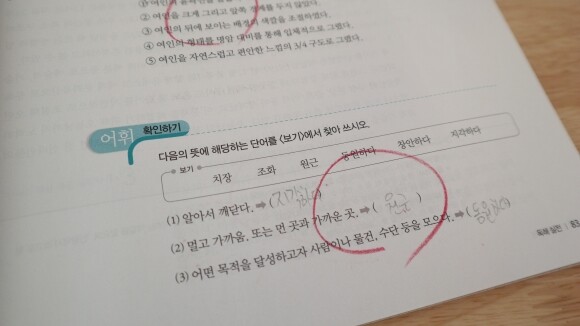 ② 여인을 크게 그리고 앞쪽 경계를 두지 않았다.
③ 여인의 뒤에 보이는 배경의 색감을 조절하였다.
④ 여인의 형태를 명암 대비를 통해 입체적으로 그렸다.
⑤ 여인을 자연스럽고 편안한 느낌의 3/4 구도로 그렸다.
어휘 확인하기
다음의 뜻에 해당하는 단어를 <보기>에서 찾아 쓰시오.
보기
치장 조화 원근 동원하다 장안하다 지각하다
(1) 알아서 깨닫다. ➡ (지각하다)
(2) 멀고 가까움. 또는 먼 곳과 가까운 곳. ➡ (원근)
(3) 어떤 목적을 달성하고자 사람이나 물건, 수단 등을 모으다. ➡ (동원하다)
독해 실전 83